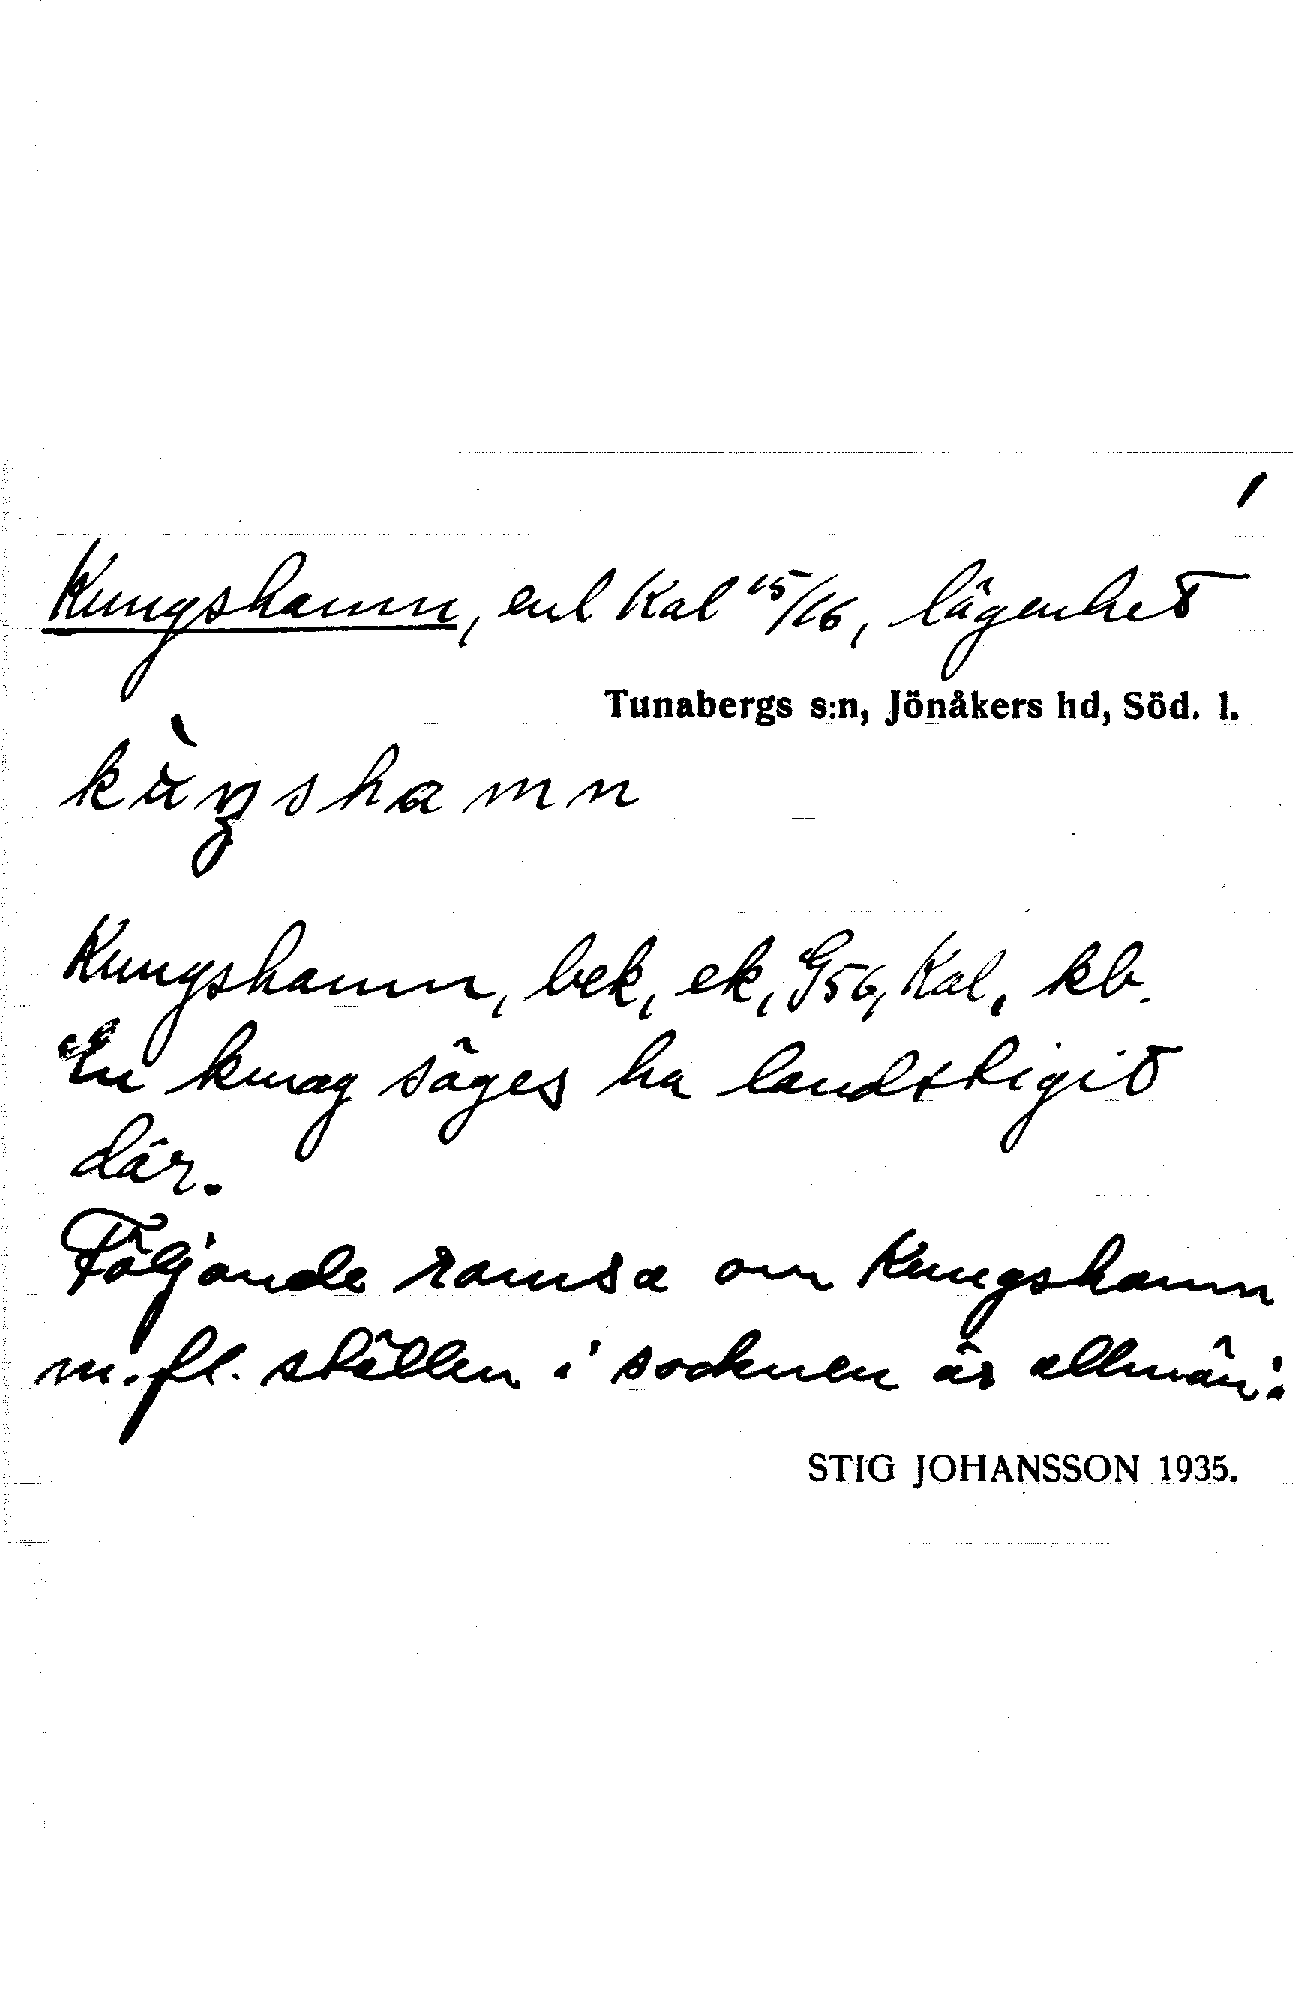 1
Kungshamn, enl Kal 15/16, lägenhet
Tunabergs s:n, Jönåkers hd, Söd. l.
kùŋshamn
Kungshamn, bek, ek, G56, Kal, kb.
En kung säges ha landstigit
där.
Följande ramsa om Kungshamn
m.fl. ställen i socknen är allmän:
STIG JOHANSSON 1935.